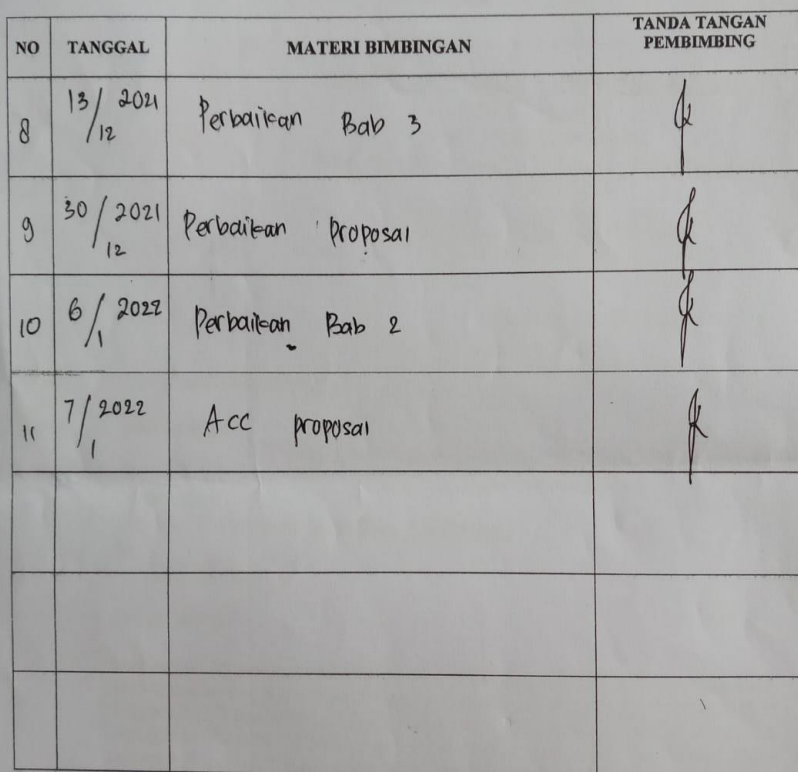 NO TANGGAL MATERI BIMBINGAN TANDA TANGAN
PEMBIMBING
8 13/12 2021 Perbaikan Bab 3
9 30/12 2021 Perbaikan proposal
10 6/1 2022 Perbaikan Bab 2
11 7/1 2022 Acc proposal